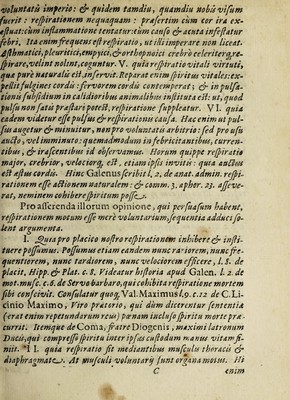 voluntatis imperio: & quidem tamdiu, quamdiu nobis visum
fuerit: respirationem nequaquam: præsertim cùm cor ira ex-
æstuat: cùm inflammatione tentatur: cùm causo & acuta infestatur
febri. Ita enim frequens est respiratio, ut illi imperare non liceat.
Asthmatici, pleuritici, empyici, & orthopnoici crebrò celeriterq; re-
spirare, velint nolint, coguntur. V. quia respiratio vitali virtuti,
qua purè naturalis est, inservit. Reparat enim spiritus vitales: ex-
pellit fulgines cordis: fervorem cordis contemperat; & in pulsa-
tionis subsidium in calidioribus animalibus instituta est: ut, quod
pulsu non satis præstari potest, respiratione suppleatur. VI. quia
eadem videtur esse pulsus & respirationis causa. Hac enim ut pul-
sus augetur & minuitur, non pro voluntatis arbitrio: sed pro usu
aucto, vel imminuto: quemadmodum in febricitantibus, curren-
tibus, & irascentibus id observamus. Horum quippe respiratio
major, crebrior, velociorq; est, etiam ipsis invitis: quia auctus
est æstus cordis. Hinc Galenus scribit l. 2. de anat. admin. respi-
rationem esse actionem naturalem: & comm. 3. aphor. 23. asseve-
rat, neminem cohibere spiritum posse.
Pro asserenda illorum opinione, qui persuasum habent,
respirationem motum esse merè voluntarium, sequentia adduci so-
lent argumenta.
I. Quia pro placito nostro respirationem inhibere & insti-
tuere possumus. Possumus etiam eandem nunc rariorem, nunc fre-
quentiorem, nunc tardiorem, nunc velociorem efficere, l. 8. de
placit. Hipp. & Plat. c. 8. Videatur historia apud Galen. l. 2. de
mot. musc. c. 6. de Servo barbaro, qui cohibita respiratione mortem
sibi conscivit. Consulatur quoq; Val. Maximus l. 9. c. 12. de C. Li-
cinio Maximo, Viro prætorio, qui dùm discrimen sententia
(erat enim repetundarum reus) pœnam incluso spiritu morte præ-
currit. Itemque de Coma, fratre Diogenis, maximi latronum
Ducis, qui compresso spiritu inter ipsas custodum manus vitam fi-
niit. II. quia respiratio fit mediantibus musculis thoracis &
diaphragmate. At musculi voluntarij sunt organa motus. Hi
C
enim